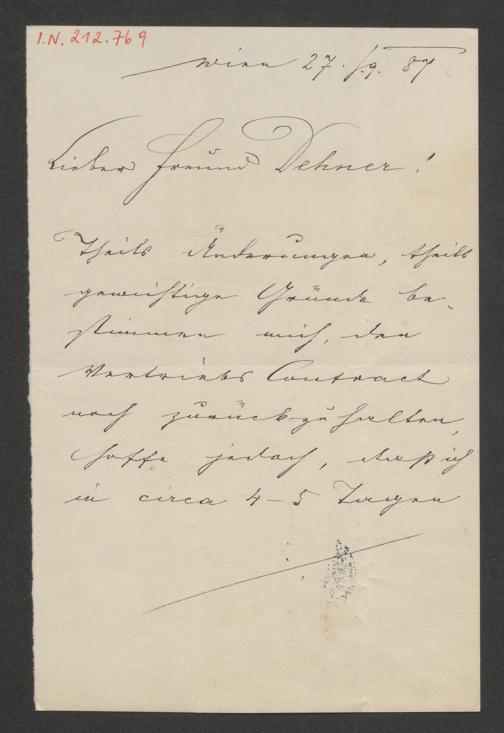 I.N. 212.769
Wien 27./9. 87
Lieber Freund Dehner!
Theils Änderungen, theils
gewichtige Gründe be-
stimmen mich, den
Vertriebs Contract
noch zurückzuhalten,
hoffe jedoch, daß ich
in circa 4–5 Tagen